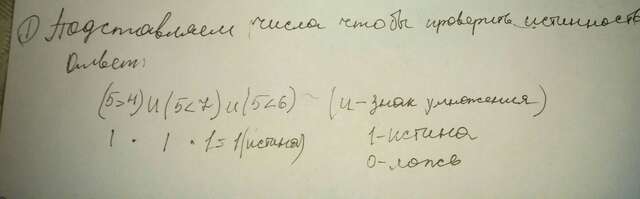 ① Подставляем числа чтобы проверить истинность
Ответ:
(5>4) и (5<7) и (5<6) (и - знак умножения)
1 · 1 · 1 = 1 (истина) 1 - истина
0 - ложь